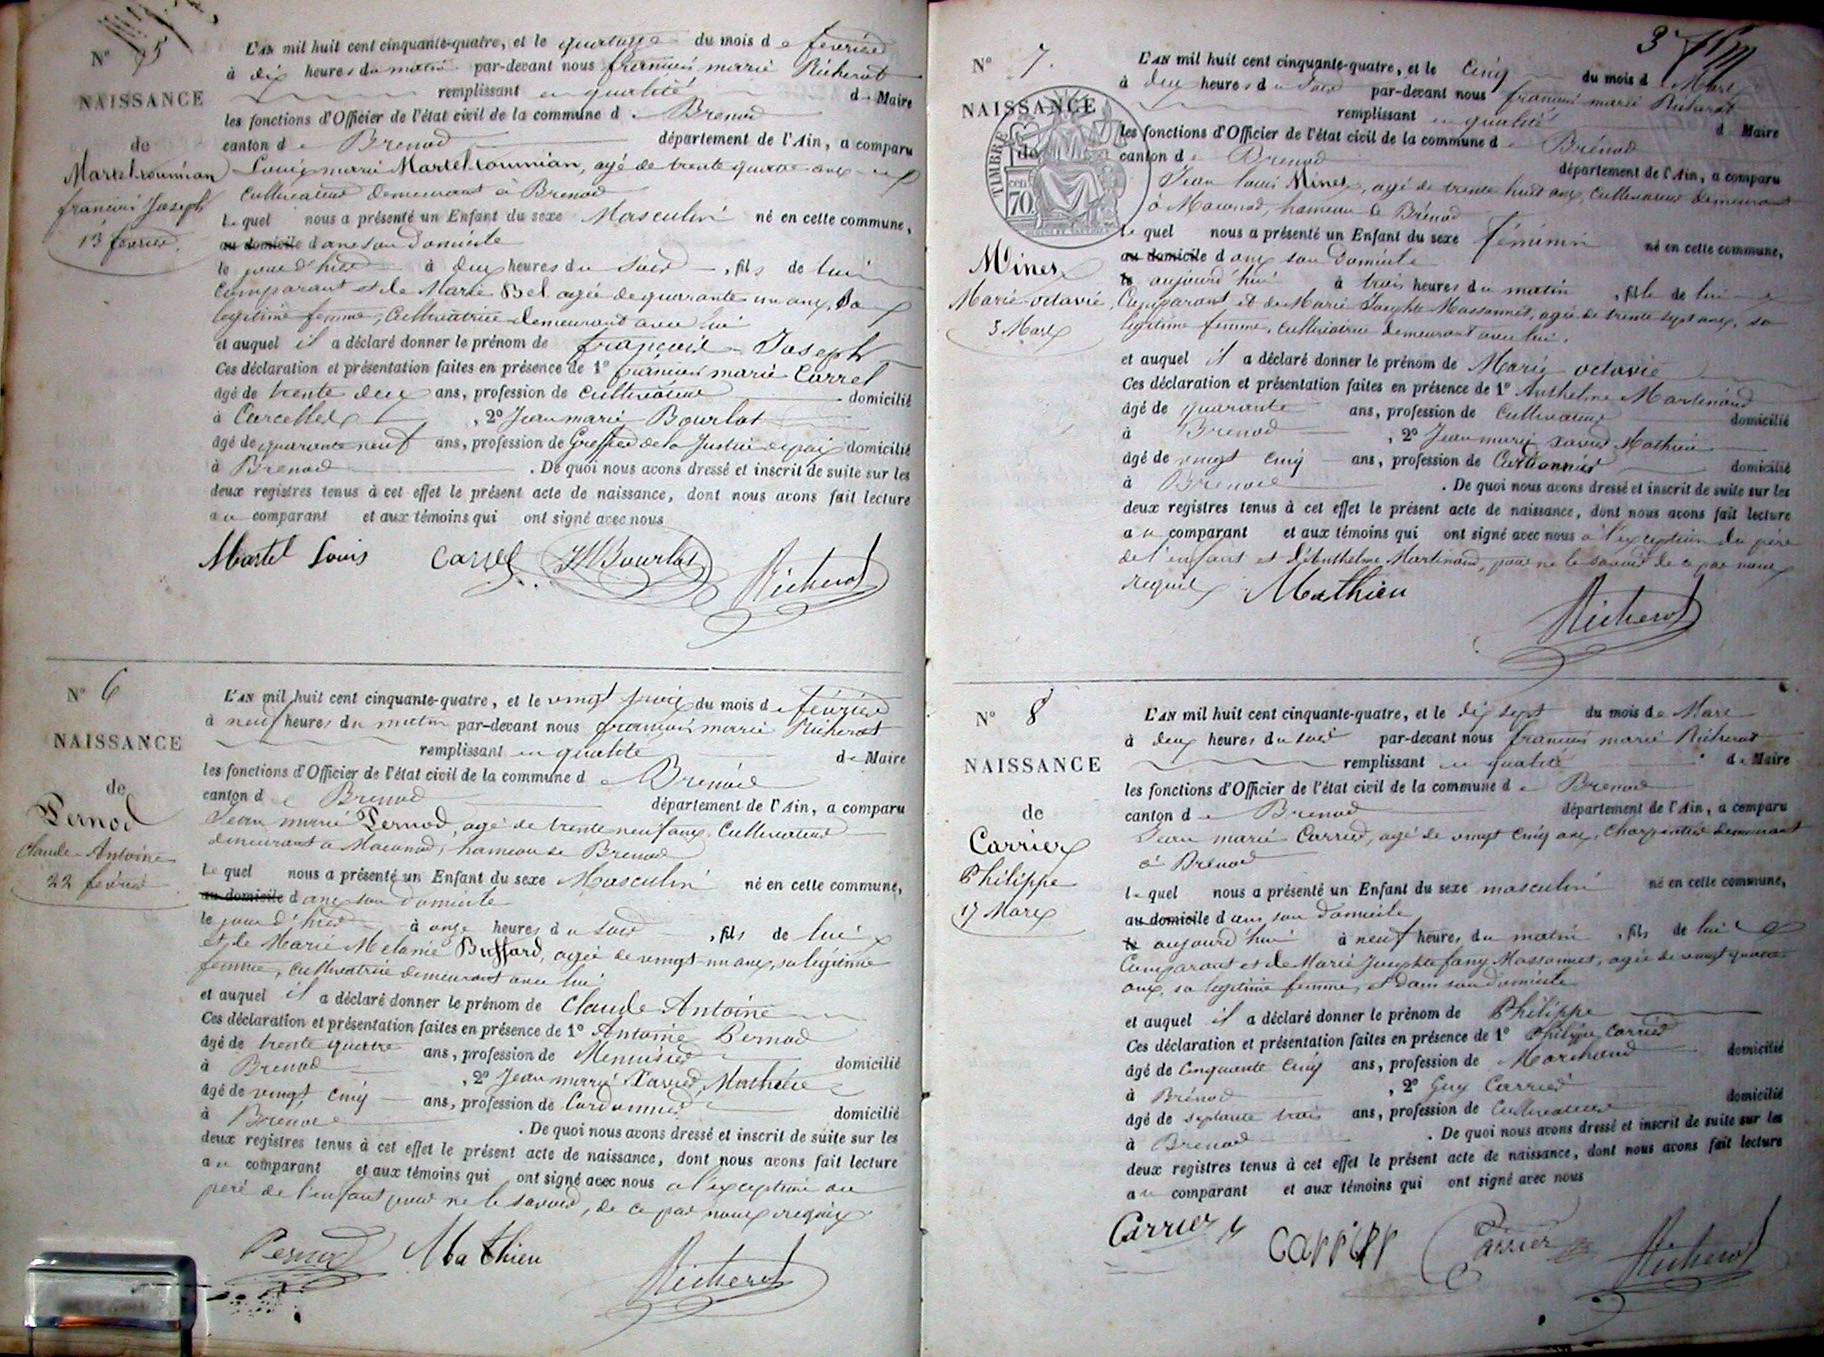 N° 5
NAISSANCE
de
Martel-tournian
francois Joseph
13 fevrier
L'AN mil huit cent cinquante-quatre, et le quatorze du mois de février
à dix heures du matin par-devant nous francois marie Richerot
remplissant en qualité de Maire
les fonctions d'Officier de l'état civil de la commune de Brenod
canton de Brenod département de l'Ain, a comparu
Louis marie Martel-tournian, agé de trente quatre ans
Cultivateur demeurant a Brenod
Lequel nous a présenté un Enfant du sexe Masculin né en cette commune,
au domicile dans son Domicile
le jour d'hier à deux heures du soir, fils de lui
Comparant et de Marie Bel agée de quarante un ans, Sa
legitime femme, Cultivatrice demeurant avec lui
et auquel il a déclaré donner le prénom de françois Joseph
Ces déclaration et présentation faites en présence de 1° francois marie Carrel
âgé de trente deux ans, profession de Cultivateur domicilié
à Corcelles, 2° Jean marie Bourlot
âgé de quarante neuf ans, profession de Greffier de la Justice de paix domicilié
à Brenod. De quoi nous avons dressé et inscrit de suite sur les
deux registres tenus à cet effet le présent acte de naissance, dont nous avons fait lecture
au comparant et aux témoins qui ont signé avec nous
Martel Louis Carrel JMBourlot Richerot
N° 6
NAISSANCE
de
Pernod
Claude-Antoine
22 fevrier
L'AN mil huit cent cinquante-quatre, et le vingt trois du mois de février
à neuf heures du matin par-devant nous francois marie Richerot
remplissant en qualité de Maire
les fonctions d'Officier de l'état civil de la commune de Brenod
canton de Brenod département de l'Ain, a comparu
Jean marie Pernod, agé de trente neuf ans, Cultivateur
demeurant a Maconod, hameau de Brenod
Lequel nous a présenté un Enfant du sexe Masculin né en cette commune,
au domicile dans son Domicile
le jour d'hier à onze heures du soir, fils de lui
et de Marie Melanie Buffard, agée de vingt-un ans, sa legitime
femme, cultivatrice demeurant avec lui
et auquel il a déclaré donner le prénom de Claude Antoine
Ces déclaration et présentation faites en présence de 1° Antoine Pernod
âgé de trente quatre ans, profession de Menuisier domicilié
à Brenod, 2° Jean marie Xavier Mathieu
âgé de vingt cinq ans, profession de Cordonnier domicilié
à Brenod. De quoi nous avons dressé et inscrit de suite sur les
deux registres tenus à cet effet le présent acte de naissance, dont nous avons fait lecture
au comparant et aux témoins qui ont signé avec nous a l'exception du
père de l'enfant pour ne le savoir, de ce par nous requis
Pernod Mathieu Richerot
3
N° 7.
NAISSANCE
de
TIMBRE
70
Minet
Marie-octavie
5 Mars
L'AN mil huit cent cinquante-quatre, et le Cinq du mois de Mars
à deux heures du Soir par-devant nous francois marie Richerot
remplissant en qualité de Maire
les fonctions d'Officier de l'état civil de la commune de Brénod
canton de Brenod département de l'Ain, a comparu
Jean Louis Minet, agé de trente huit ans, Cultivateur demeurant
à Maconod, hameau de Brénod
Lequel nous a présenté un Enfant du sexe féminin né en cette commune,
au domicile dans son Domicile
le aujourd'hui à trois heures du matin, fille de lui
Comparant et de Marie Josephte Massonnet, agée de trente sept ans, sa
legitime femme, cultivatrice demeurant avec lui.
et auquel il a déclaré donner le prénom de Marie octavie
Ces déclaration et présentation faites en présence de 1° Anthelme Martinand
âgé de quarante ans, profession de Cultivateur domicilié
à Brenod, 2° Jean marie Xavier Mathieu
âgé de vingt cinq ans, profession de Cordonnier domicilié
à Brenod. De quoi nous avons dressé et inscrit de suite sur les
deux registres tenus à cet effet le présent acte de naissance, dont nous avons fait lecture
au comparant et aux témoins qui ont signé avec nous à l'exception du père
de l'enfant et d'Anthelme Martinand, pour ne le savoir de ce par nous
requis
Mathieu Richerot
N° 8
NAISSANCE
de
Carrier
Philippe
17 Mars
L'AN mil huit cent cinquante-quatre, et le dix sept du mois de Mars
à deux heures du soir par-devant nous francois marie Richerot
remplissant en qualité de Maire
les fonctions d'Officier de l'état civil de la commune de Brenod
canton de Brenod département de l'Ain, a comparu
Jean marie Carrier, agé de vingt cinq ans, Charpentier demeurant
à Brenod
Lequel nous a présenté un Enfant du sexe masculin né en cette commune,
au domicile dans son Domicile
le aujourd'hui à neuf heures du matin, fils de lui
Comparant et de Marie Josephte fany Massonnet, agée de vingt quatre
ans, sa legitime femme, et dans son domicile
et auquel il a déclaré donner le prénom de Philippe
Ces déclaration et présentation faites en présence de 1° Philippe Carrier
âgé de Cinquante Cinq ans, profession de Marchand domicilié
à Brénod, 2° Guy Carrier
âgé de septante trois ans, profession de Cultivateur domicilié
à Brenod. De quoi nous avons dressé et inscrit de suite sur les
deux registres tenus à cet effet le présent acte de naissance, dont nous avons fait lecture
au comparant et aux témoins qui ont signé avec nous
Carrier Carrier Carrier Richerot